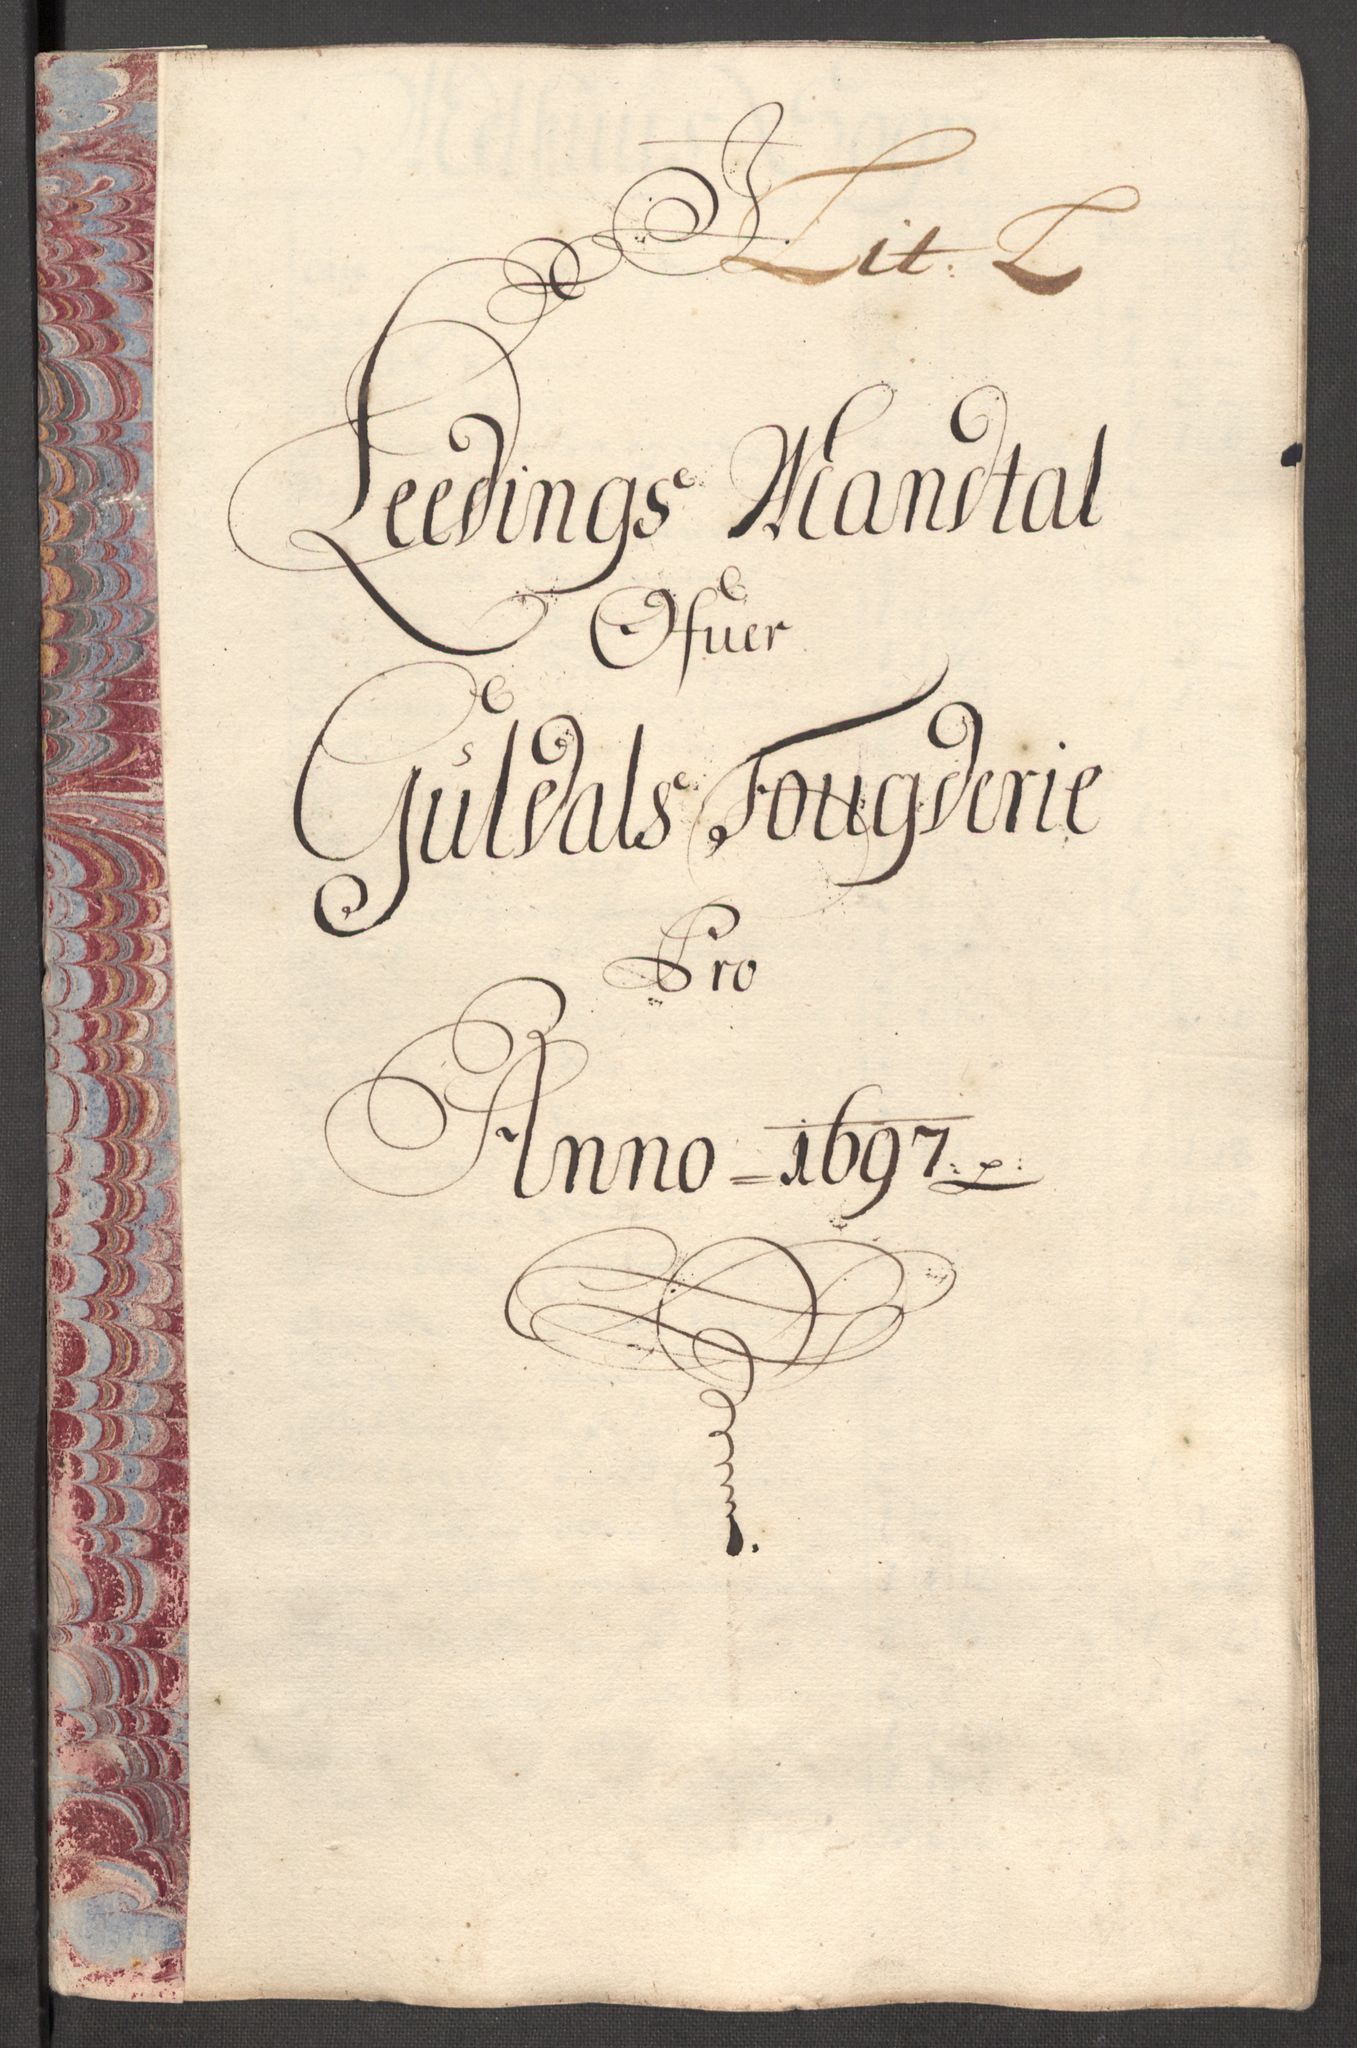 Lit. L
Leedings Mandtal
Ofuer
Guldals Fougderie
Pro
Anno = 1697